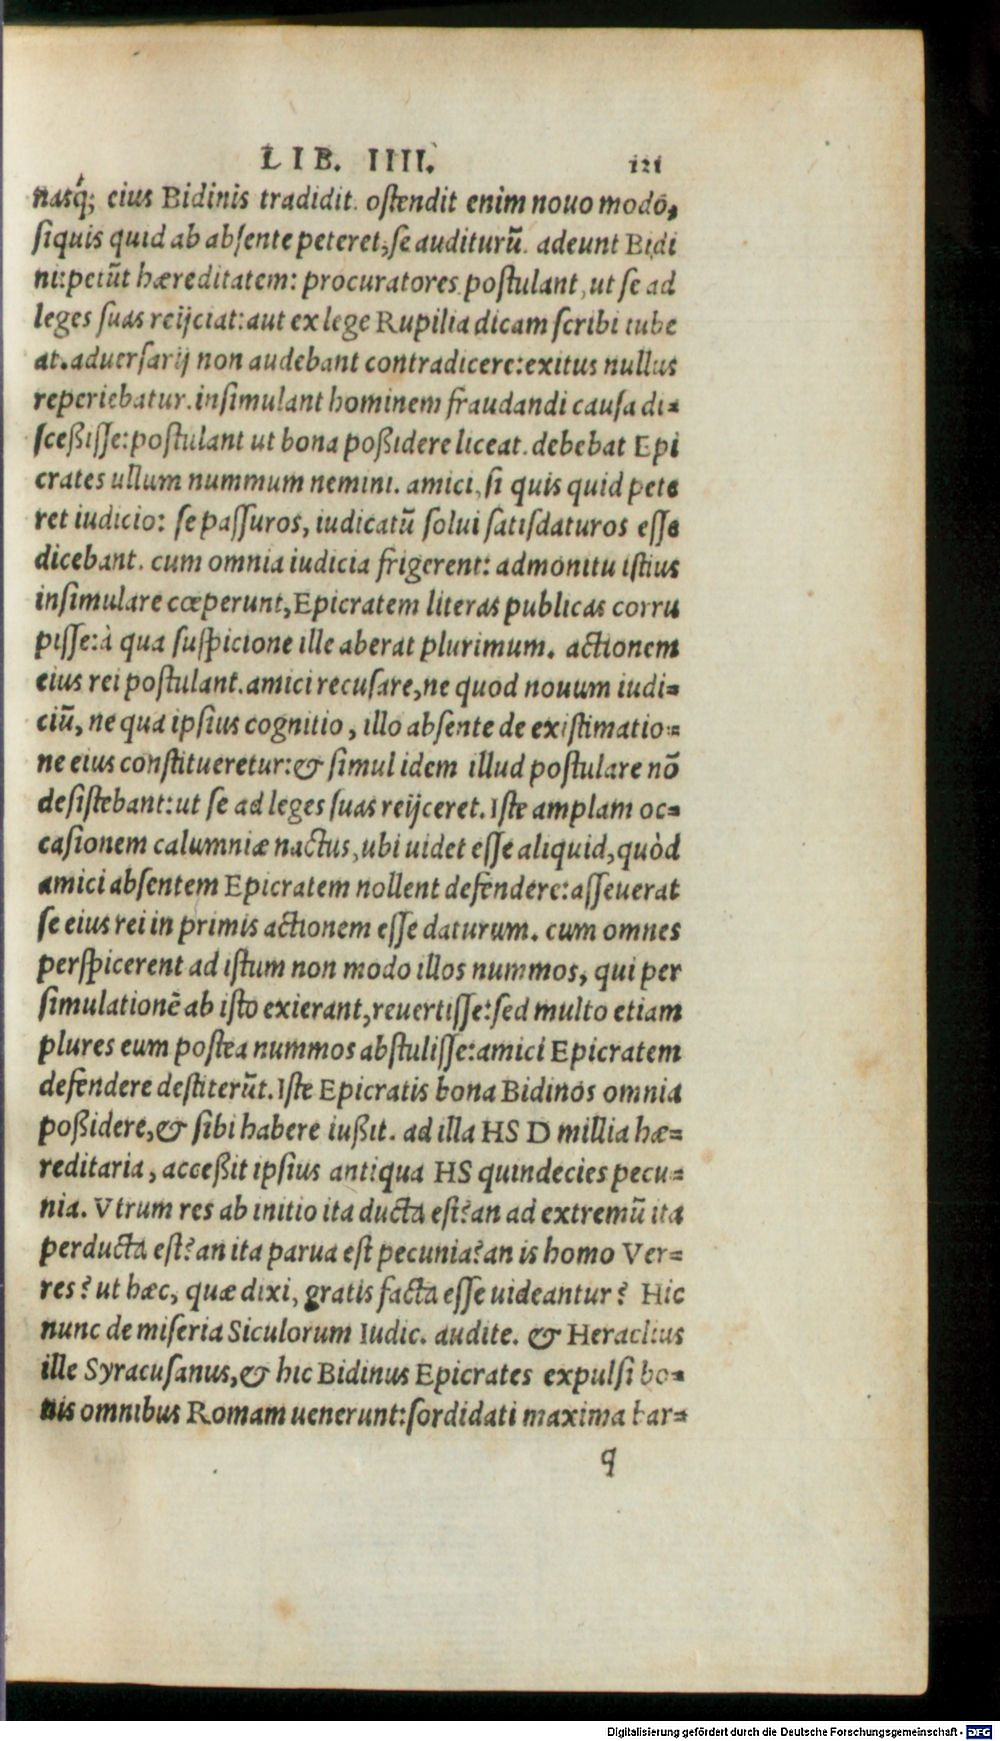 LIB. IIII. 121
nasq́; eius Bidinis tradidit. ostendit enim nouo modo,
siquis quid ab absente peteret, se auditurũ. adeunt Bidi
ni: petũt hæreditatem: procuratores postulant, ut se ad
leges suas reijciat: aut ex lege Rupilia dicam scribi iube
at. aduersarij non audebant contradicere: exitus nullus
reperiebatur. insimulant hominem fraudandi causa di=
sceßisse: postulant ut bona poßidere liceat. debebat Epi
crates ullum nummum nemini. amici, si quis quid pete
ret iudicio: se passuros, iudicatũ solui satisdaturos esse
dicebant. cum omnia iudicia frigerent: admonitu istius
insimulare cœperunt, Epicratem literas publicas corru
pisse: à qua suspicione ille aberat plurimum. actionem
eius rei postulant. amici recusare, ne quod nouum iudi=
ciũ, ne qua ipsius cognitio, illo absente de existimatio=
ne eius constitueretur: & simul idem illud postulare nõ
desistebant: ut se ad leges suas reijceret. Iste amplam oc=
casionem calumniæ nactus, ubi uidet esse aliquid, quòd
amici absentem Epicratem nollent defendere: asseuerat
se eius rei in primis actionem esse daturum. cum omnes
perspicerent ad istum non modo illos nummos, qui per
simulationẽ ab isto exierant, reuertisse: sed multo etiam
plures eum postea nummos abstulisse: amici Epicratem
defendere destiterũt. Iste Epicratis bona Bidinos omnia
poßidere, & sibi habere iußit. ad illa HS D millia hæ=
reditaria, acceßit ipsius antiqua HS quindecies pecu=
nia. Vtrum res ab initio ita ducta est? an ad extremũ ita
perducta est? an ita parua est pecunia? an is homo Ver=
res? ut hæc, quæ dixi, gratis facta esse uideantur? Hic
nunc de miseria Siculorum Iudic. audite. & Heraclius
ille Syracusanus, & hic Bidinus Epicrates expulsi bo=
nis omnibus Romam uenerunt: sordidati maxima bar=
q
Digitalisierung gefördert durch die Deutsche Forschungsgemeinschaft - DFG